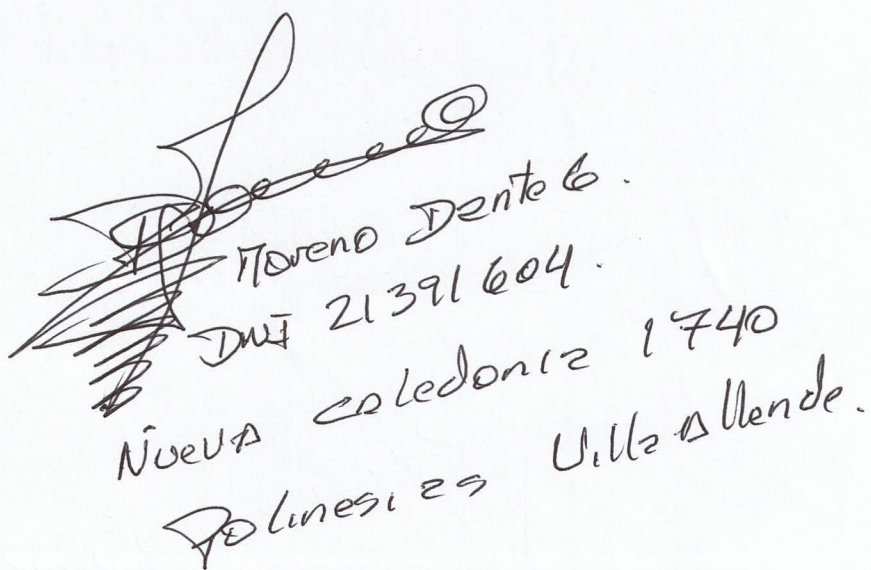 Moreno Dante G.
DNI 21391604.
Nueva Caledonia 1740
Polinesias Villa Allende.